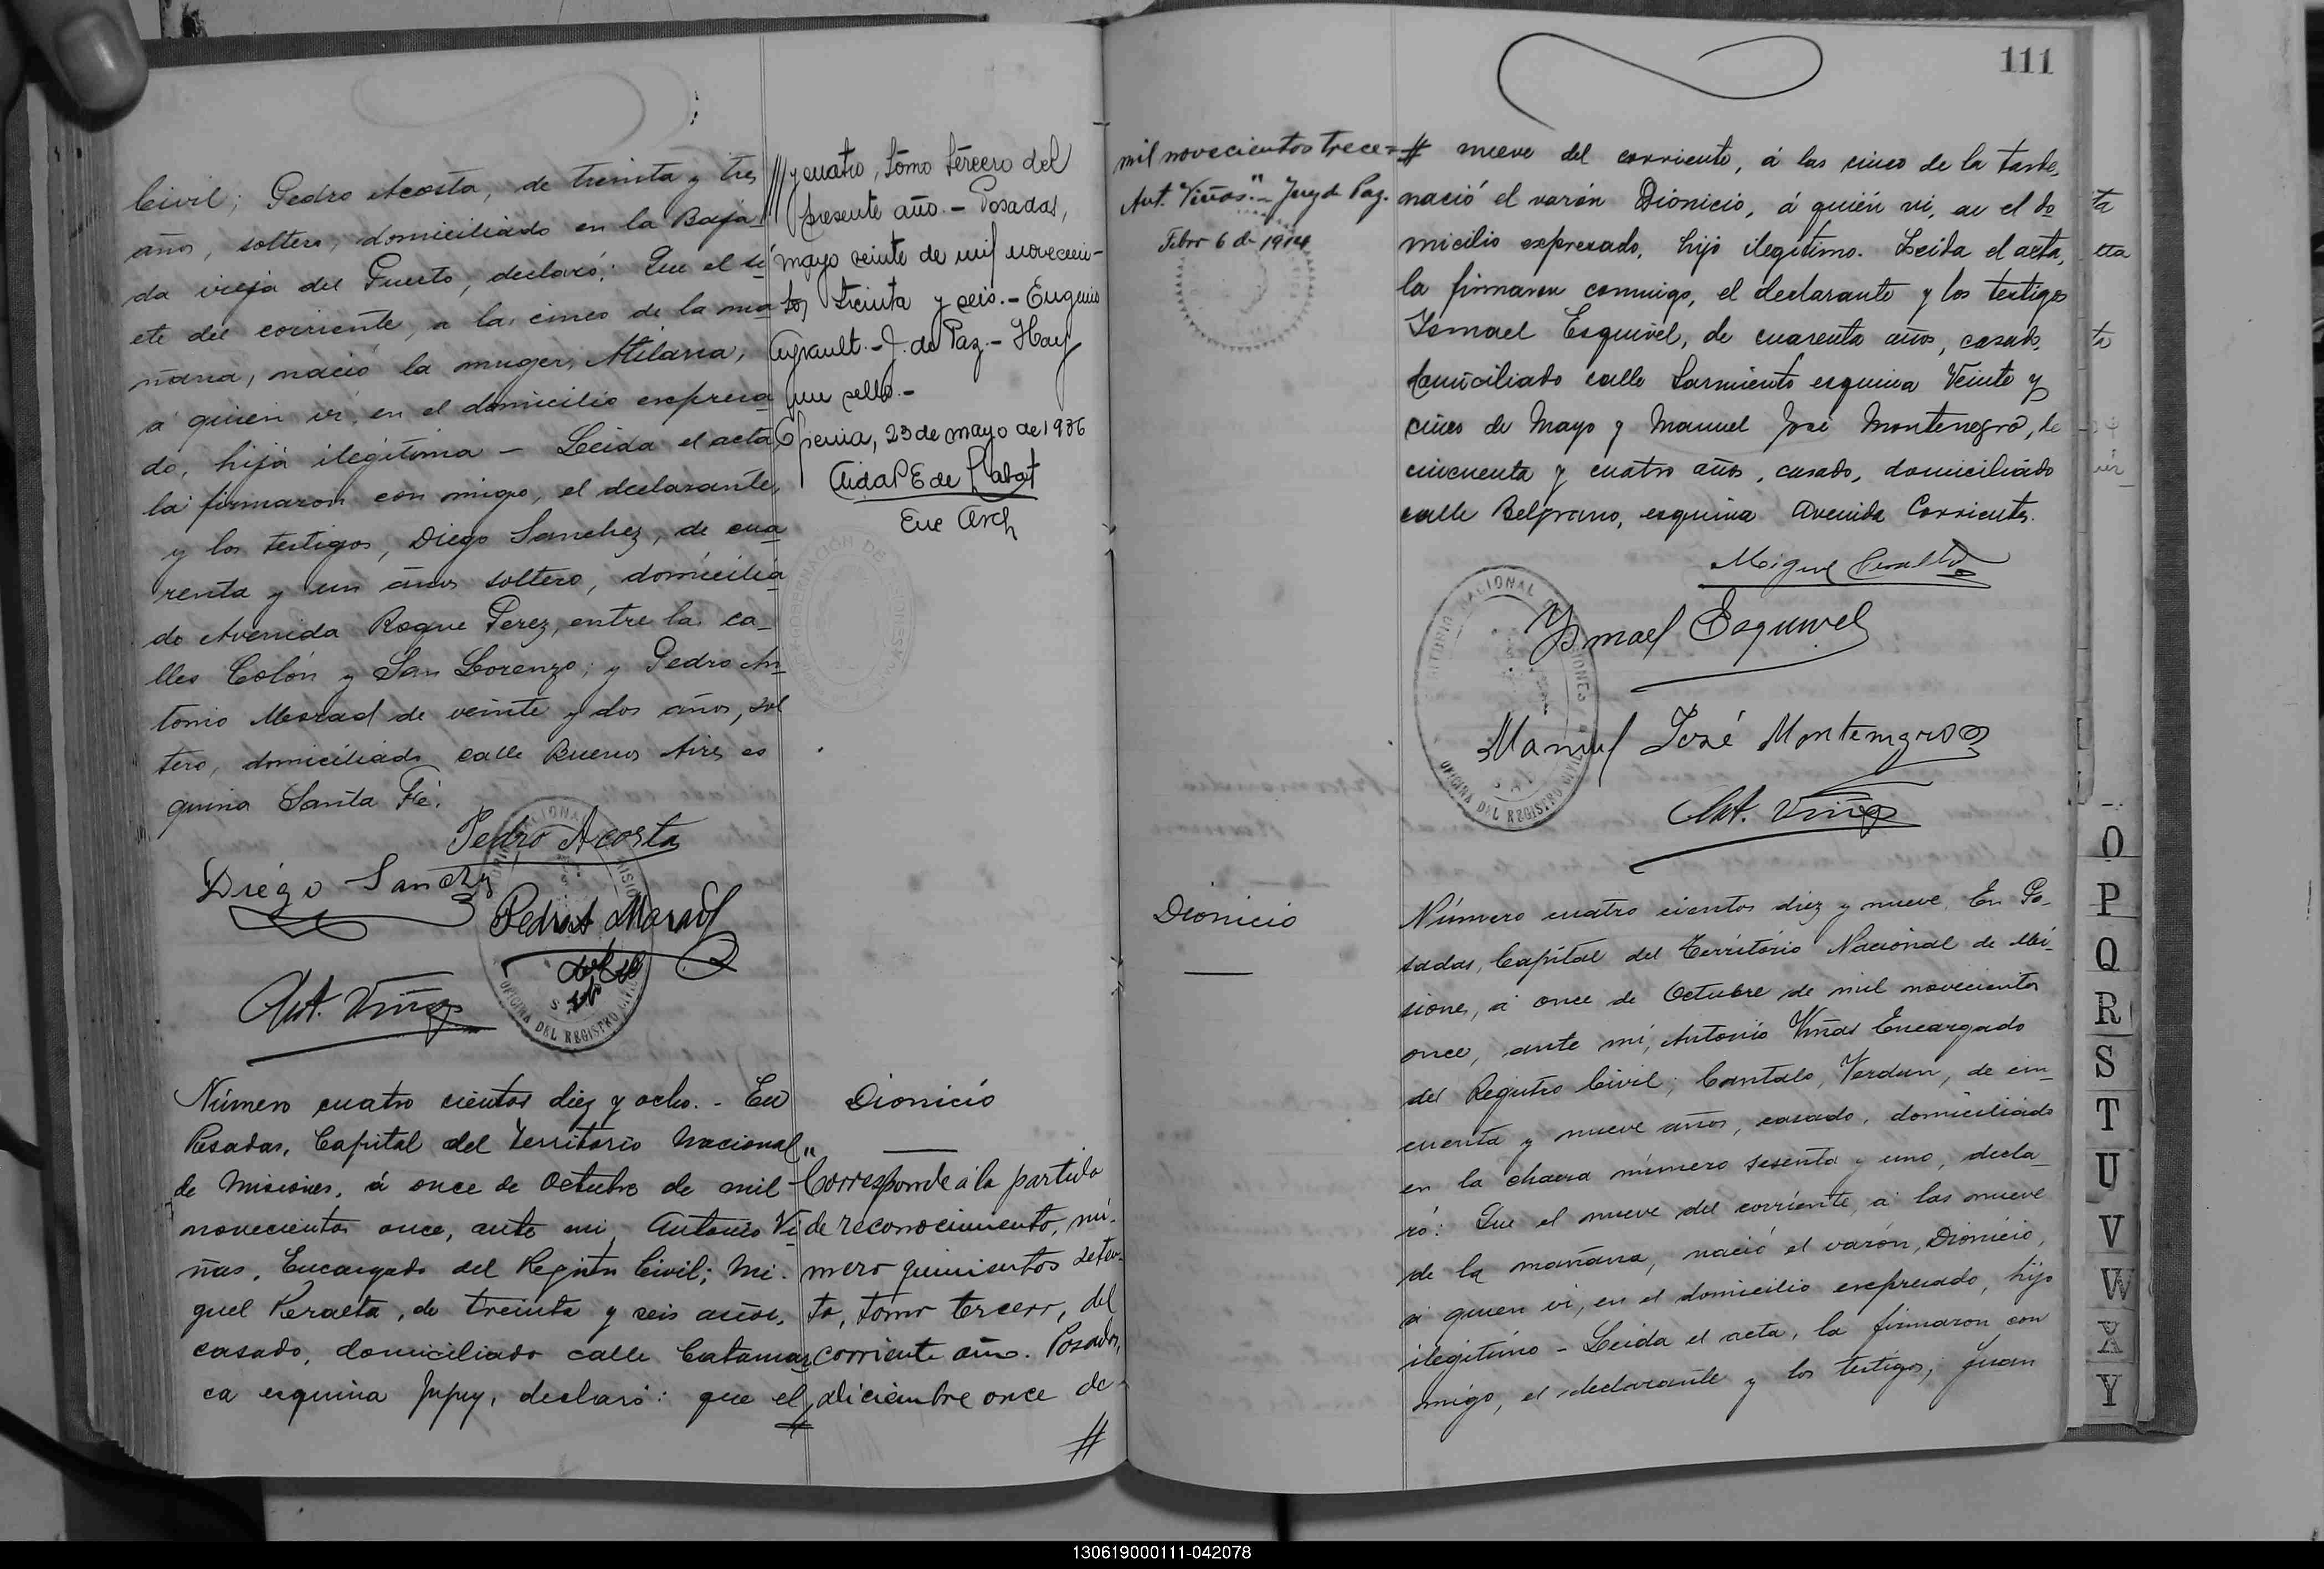 Civil; Pedro Acosta, de treinta y tres
años, soltero, domiciliado en la Baja
da vieja del Puerto, declaró: Que el si
ete del corriente, a las cinco de la ma
ñana, nació la muger, Hilaria,
á quien vi, en el domicilio expresa
do, hija ilegítima — Leida el acta
la firmaron con migo, el declarante,
y los testigos, Diego Sanchez, de cua
renta y un años soltero, domicilia
do Avenida Roque Perez, entre las ca
lles Colón y San Lorenzo; y Pedro An
tonio Morad de veinte y dos años, sol
tero, domiciliado calle Buenos Aires es
quina Santa Fé.
Pedro Acosta
Diégo Sanchz
Pedro A Morad
Ant. Viñas
OFICINA DEL REGISTRO CIVIL
y cuatro, tomo tercero del
presente año. — Posadas,
mayo veinte de mil novecien-
tos treinta y seis. — Eugenio
J. de Paz. — Hay
un sello. —
23 de mayo de 1936
Aida P E de
Enc Arch
GOBERNACIÓN DE MISIONES
Número cuatro cientos diez y ocho. - En
Posadas, Capital del Territorio Nacional
de Misiones, á once de Octubre de mil
novecientos once, ante mi, Antonio Vi
ñas, Encargado del Registro Civil; Mi-
guel Peralta, de treinta y seis años,
casado, domiciliado calle Catamar
ca esquina Jujuy, declaró: que el
#
Dionicio
"Corresponde á la partida
de reconocimiento, nú-
mero quinientos seten-
ta, tomo tercero, del
corriente año. Posadas,
diciembre once de
#
111
mil novecientos trece =
Ant. Viñas." - Juez de Paz.
Febro 6 de 1914
# nueve del corriente, á las cinco de la tarde,
nació el varón Dionicio, á quién vi, en el do
micilio expresado, hijo ilegítimo. Leida el acta,
la firmaron conmigo, el declarante y los testigos
Ismael Esquivel, de cuarenta años, casado,
domiciliado calle Sarmiento esquina Veinte y
cinco de Mayo y Manuel José Montenegro, de
cincuenta y cuatro años, casado, domiciliado
calle Belgrano, esquina Avenida Corrientes.
Miguel Peralta
Ysmael Esquivel
Manuel José Montenegro
Ant. Viñas
TERRITORIO NACIONAL DE MISIONES
OFICINA DEL REGISTRO CIVIL
Dionicio
Número cuatro cientos diez y nueve. En Po-
sadas, Capital del Territorio Nacional de Mi-
siones, á once de Octubre de mil novecientos
once, ante mí, Antonio Viñas Encargado
del Registro Civil; Verdun, de cin
cuenta y nueve años, casado, domiciliado
en la chacra número sesenta y uno, decla
ró: Que el nueve del corriente, á las nueve
de la mañana, nació el varón, Dionicio,
á quien vi, en el domicilio expresado, hijo
ilegítimo - Leida el acta, la firmaron con
migo, el declarante y los testigos; Juan
O
P
Q
R
S
T
U
V
W
X
Y
130619000111-042078